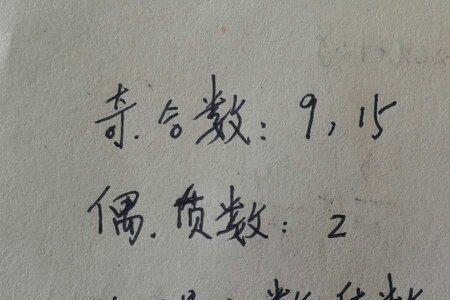 奇.合数:9,15
偶.质数:2